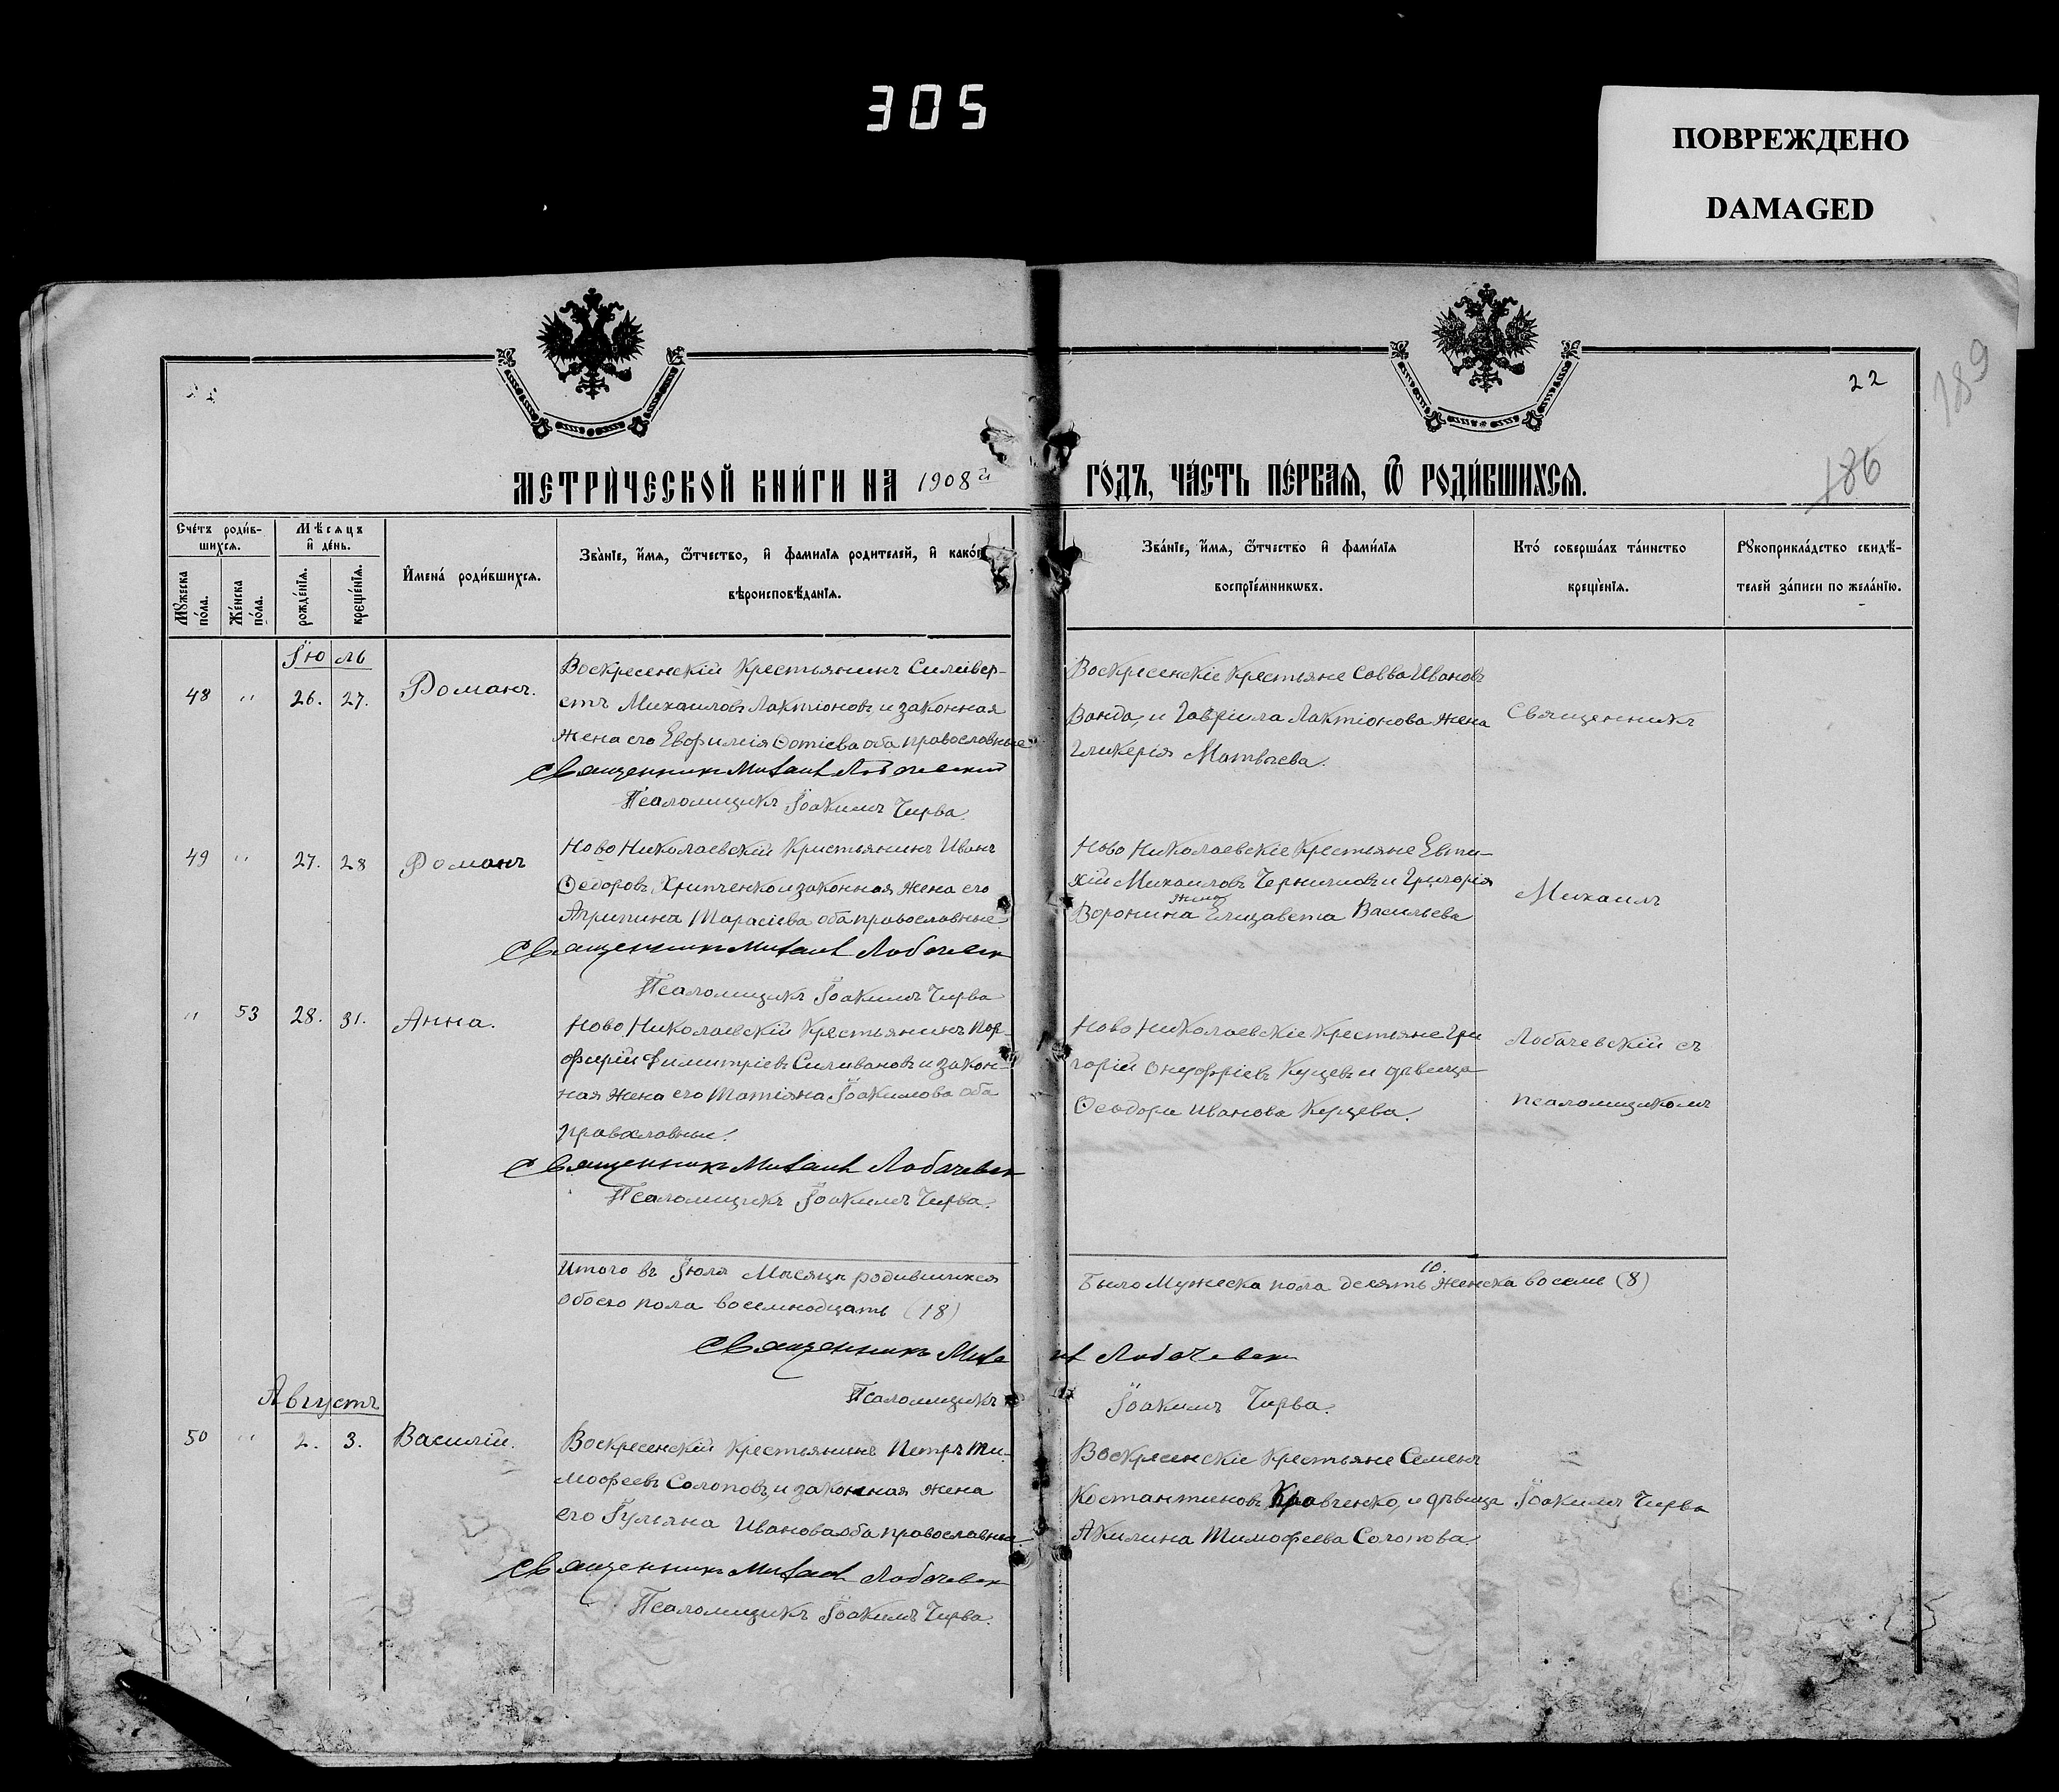 305
ПОВРЕЖДЕНО
DAMAGED
22
189
186
МЕТРИЧЕСКОЙ КНИГИ НА 1908й ГОДЪ, ЧАСТЬ ПЕРВАЯ, Ѿ РОДИВШИХСЯ.
Счетъ родив-
шихся.
Мѣсяцъ
и день.
Мꙋжеска
пола.
Женска
пола.
рожденїя.
крещенїя.
Имена родившихся.
Званїе, имя, ѿтчество, и фамилїя родителей, и какого
вѣроисповѣданїя.
Званїе, имя, ѿтчество и фамилїя
воспрїемникѡвъ.
Кто совершалъ таинство
крещенїя.
Рꙋкоприкладство свидѣ-
телей записи по желанїю.
Іюль
48 " 26. 27. Романъ.
Воскресенскій Крестьянинъ Сильвер-
стъ Михаиловъ Лактіоновъ, и законная
жена его Евфимія Фотіева оба православные
Священникъ Михаилъ Лобачевский
Псаломщикъ Іоакимъ Чирва.
Воскресенскіе Крестьяне Савва Ивановъ
Ванда, и Гавріила Лактіонова жена
Гликерія Матвѣева.
Священникъ
49 " 27. 28 Романъ
Ново Николаевскій Кристьянинъ Иванъ
Ѳедоровъ Хрипченко и законная жена его
Агрипина Тарасіева оба православные
Священникъ Михаилъ Лобачевск
Псаломщикъ Іоакимъ Чирва
Ново Николаевскіе Крестьяне Евти-
хій Михаиловъ и Григорія
жена
Воронина Елизавета Васильева
Михаилъ
" 53 28. 31. Анна.
Ново Николаевскій Крестьянинъ Пор-
фирій Димитріевъ Силивановъ и закон-
ная жена его Татіяна Іоакимова оба
православные.
Священникъ Михаилъ Лобачевск
Псаломщикъ Іоакимъ Чирва.
Ново Николаевскіе Крестьяне Гри
горій Онуфріевъ Куцевъ и дѣвица
Ѳеодора Иванова Куцева.
Лобачевскій съ
псаломщикомъ
Итого въ Іюля Мѣсяцѣ родившихся
обоего пола восемнодцать (18)
10.
Было Мужеска пола десять Женска восемь (8)
Священникъ Михаилъ Лобачевск
Псаломщикъ Іоакимъ Чирва.
Августъ
50 " 2. 3. Василій.
Воскресенскій Крестьянинъ Петръ Ти-
мофеевъ Солоповъ, и законная жена
его Іульяна Иванова оба православные
Священникъ Михаилъ Лобачевск
Псаломщикъ Іоакимъ Чирва.
Воскресенскіе Крестьяне Семенъ
Костантиновъ Кравченко, и дѣвица
Акилина Тимофеева Солопова.
Іоакимъ Чирва